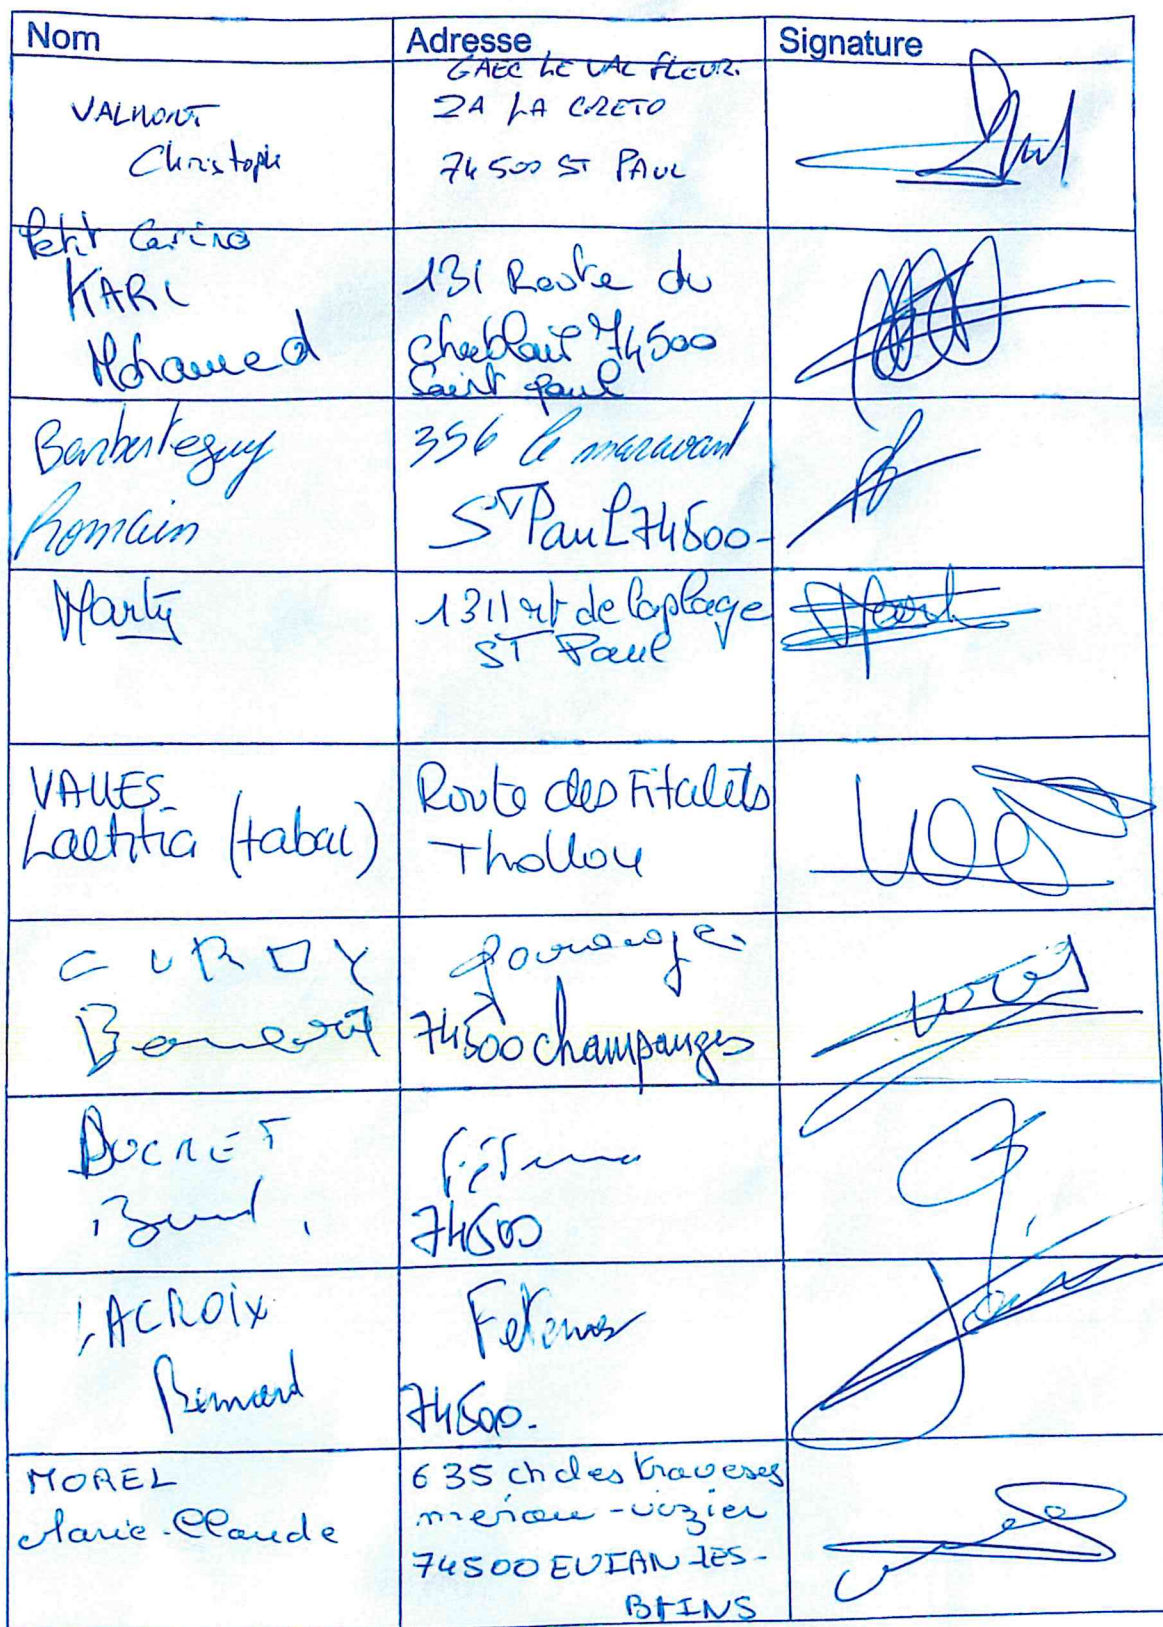 Nom
Adresse
Signature
VALMONT
Christophe
GAEC LE VAL FLEURI
2A LA CRETO
74500 ST PAUL
Petit Casino
KARL
Mohamed
131 Route du
Chablais 74500
Saint Paul
Barberteguy
Romain
356 le maravant
ST Paul 74500-
Marty
1311 rt de la plage
ST Paul
VALLES
Laetitia (tabac)
Route des Fitalets
Thollon
CUROY
74500 champanges
DUCRET
Féternes
74500
LACROIX
Bernard
Feternes
74500.
MOREL
Marie-Claude
635 ch des traverses
-vizier
74500 EVIAN LES-
BAINS